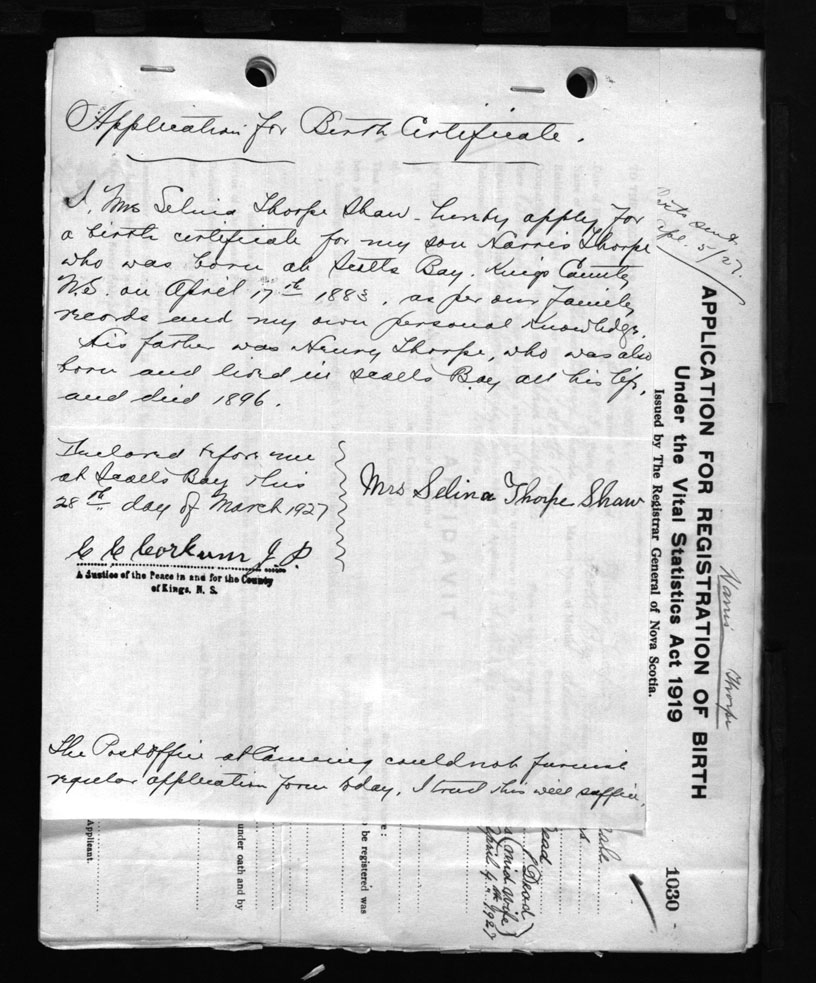 Application for Birth Certificate.
I, Mrs Selina Thorpe Shaw - hereby apply for
a birth certificate for my son Harris Thorpe
who was born at Scotts Bay. Kings County
N.S. on April 17th 1883, as per our family
records and my own personal knowledge.
His father was Henry Thorpe, who was also
born and lived in Scotts Bay all his life,
and died 1896.
Declared before me
at Scotts Bay this
28th day of March 1927
Mrs Selina Thorpe Shaw
C E Corkum J. P.
A Justice of the Peace in and for the County
of Kings, N. S.
The Post Office at Canning could not furnish
regular application form today. I trust this will suffice.
sent
Apl. 5/27.
APPLICATION FOR REGISTRATION OF BIRTH
Under the Vital Statistics Act 1919
Issued by The Registrar General of Nova Scotia.
Harris Thorpe
1030
AFFIDAVIT
Male
Dead
Dead
(mid wife)
April 4th 1927
be registered was
under oath and by
Applicant.